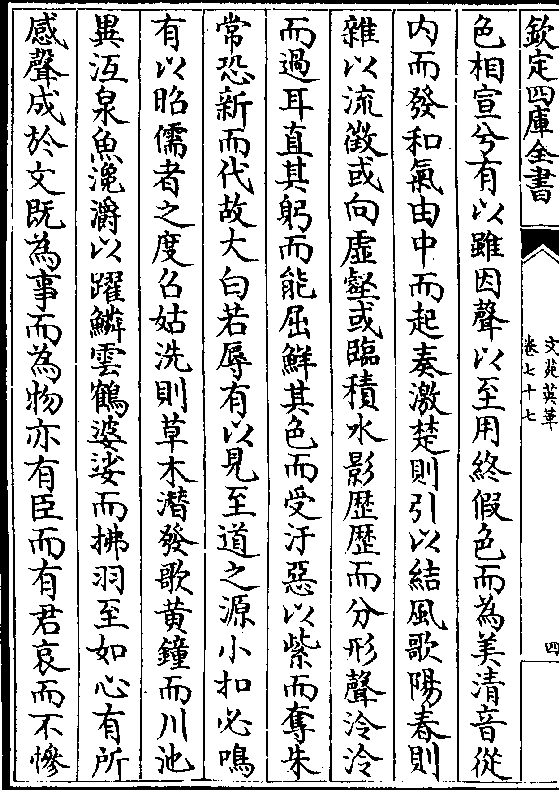 欽定四庫全書
文苑英華
卷七十七
四
色相宣兮有以雖因聲以至用終假色而為美清音從
内而發和氣由中而起奏激楚則引以結風歌陽春則
雜以流徴或向虚壑或臨積水影歴歴而分形聲泠泠
而過耳直其躬而能屈鮮其色而受汙惡以紫而奪朱
常恐新而代故大白若辱有以見至道之源小扣必鳴
有以昭儒者之度召姑洗則草木潜發歌黄鐘而川池
異沍泉魚㴜灂以躍鱗雲鶴婆娑而拂羽至如心有所
感聲成於文既為事而為物亦有臣而有君哀而不慘